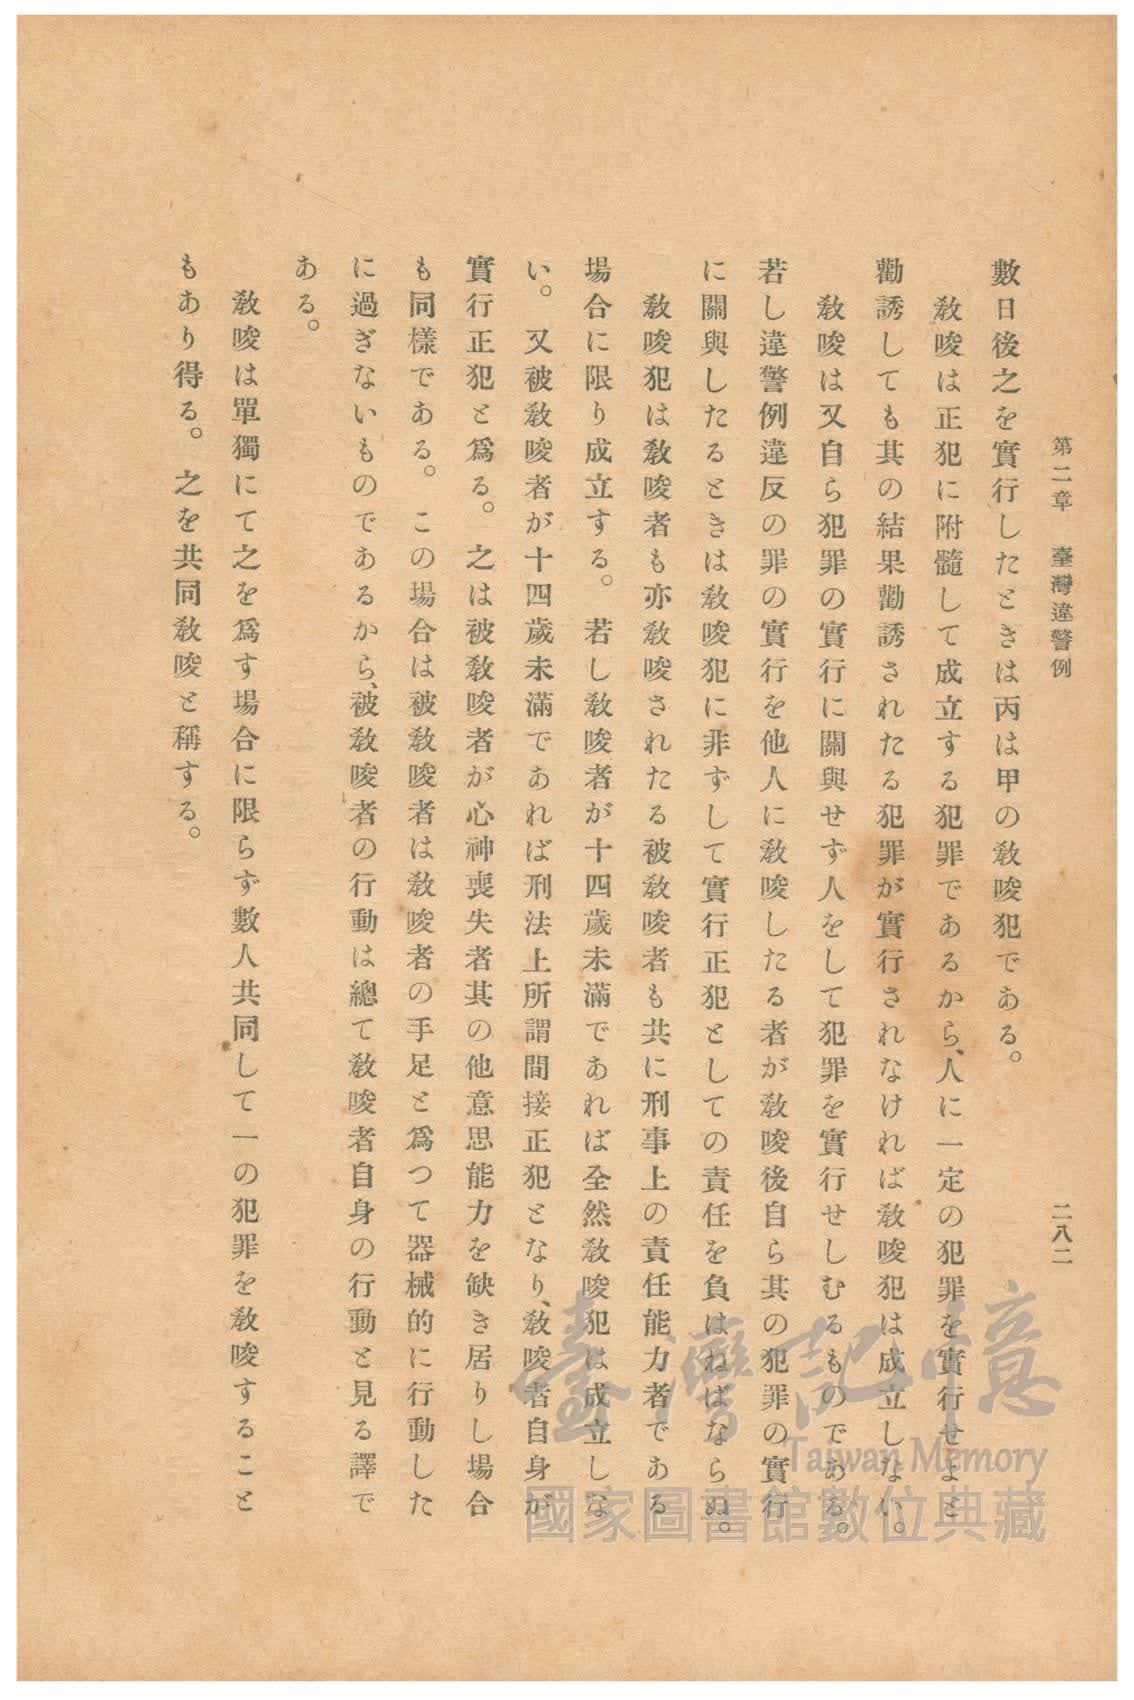 第二章 臺灣違警例 二八二
數日後之を實行したときは丙は甲の教唆犯である。
教唆は正犯に附髓して成立する犯罪であるから、人に一定の犯罪を實行せよと
勸誘しても其の結果勸誘されたる犯罪が實行されなければ教唆犯は成立しない。
教唆は又自ら犯罪の實行に關與せず人をして犯罪を實行せしむるものである。
若し違警例違反の罪の實行を他人に教唆したる者が教唆後自ら其の犯罪の實行
に關與したるときは教唆犯に非ずして實行正犯としての責任を負はねばならぬ。
教唆犯は教唆者も亦教唆されたる被教唆者も共に刑事上の責任能力者である
場合に限り成立する。若し教唆者が十四歲未滿であれば全然教唆犯は成立しな
い。又被教唆者が十四歲未滿であれば刑法上所謂間接正犯となり、教唆者自身が
實行正犯と爲る。之は被教唆者が心神喪失者其の他意思能力を缺き居りし場合
も同樣である。この場合は被教唆者は教唆者の手足と爲つて器械的に行動した
に過ぎないものであるから、被教唆者の行動は總て教唆者自身の行動と見る譯で
ある。
教唆は單獨にて之を爲す場合に限らず數人共同して一の犯罪を教唆すること
もあり得る。之を共同教唆と稱する。
臺灣記憶
Taiwan Memory
國家圖書館數位典藏